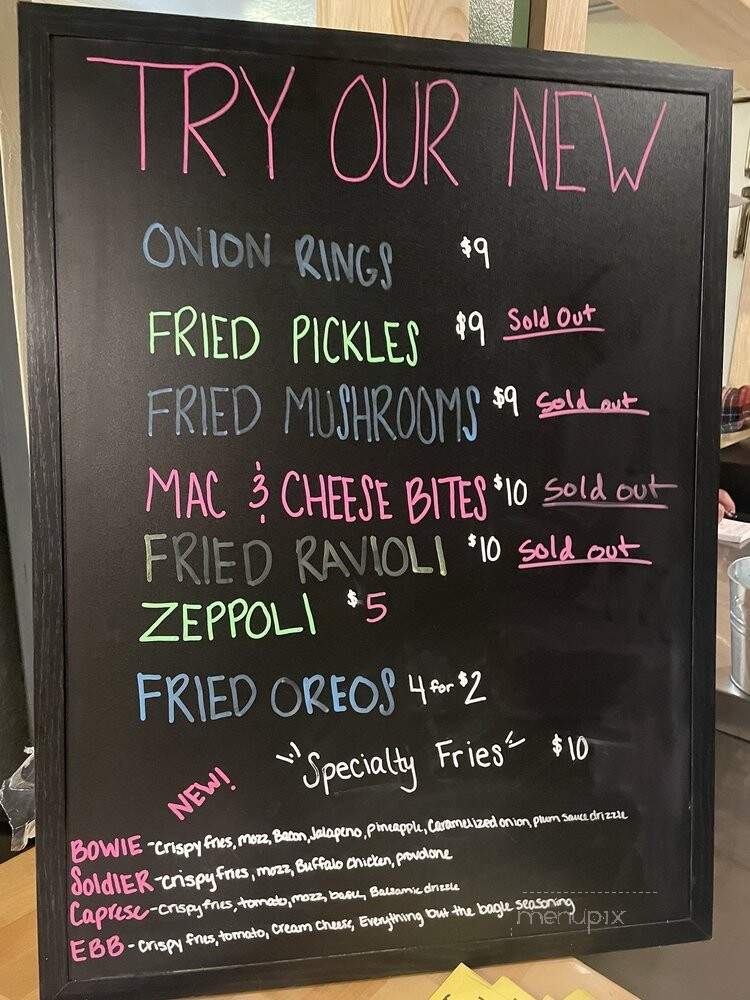 TRY OUR NEW
ONION RINGS $9
FRIED PICKLES $9 Sold Out
FRIED MUSHROOMS $9 Sold out
MAC & CHEESE BITES $10 Sold out
FRIED RAVIOLI $10 Sold out
ZEPPOLI $5
FRIED OREOS 4 for $2
"Specialty Fries" $10
NEW!
BOWIE - Crispy fries, mozz, Bacon, Jalapeno, pineapple, Caramelized onion, plum sauce drizzle
SOldIER - crispy fries, mozz, Buffalo Chicken, provolone
Caprese - crispy fries, tomato, mozz, basil, Balsamic drizzle
EBB - crispy fries, tomato, Cream Cheese, Everything but the bagle seasoning
menupix